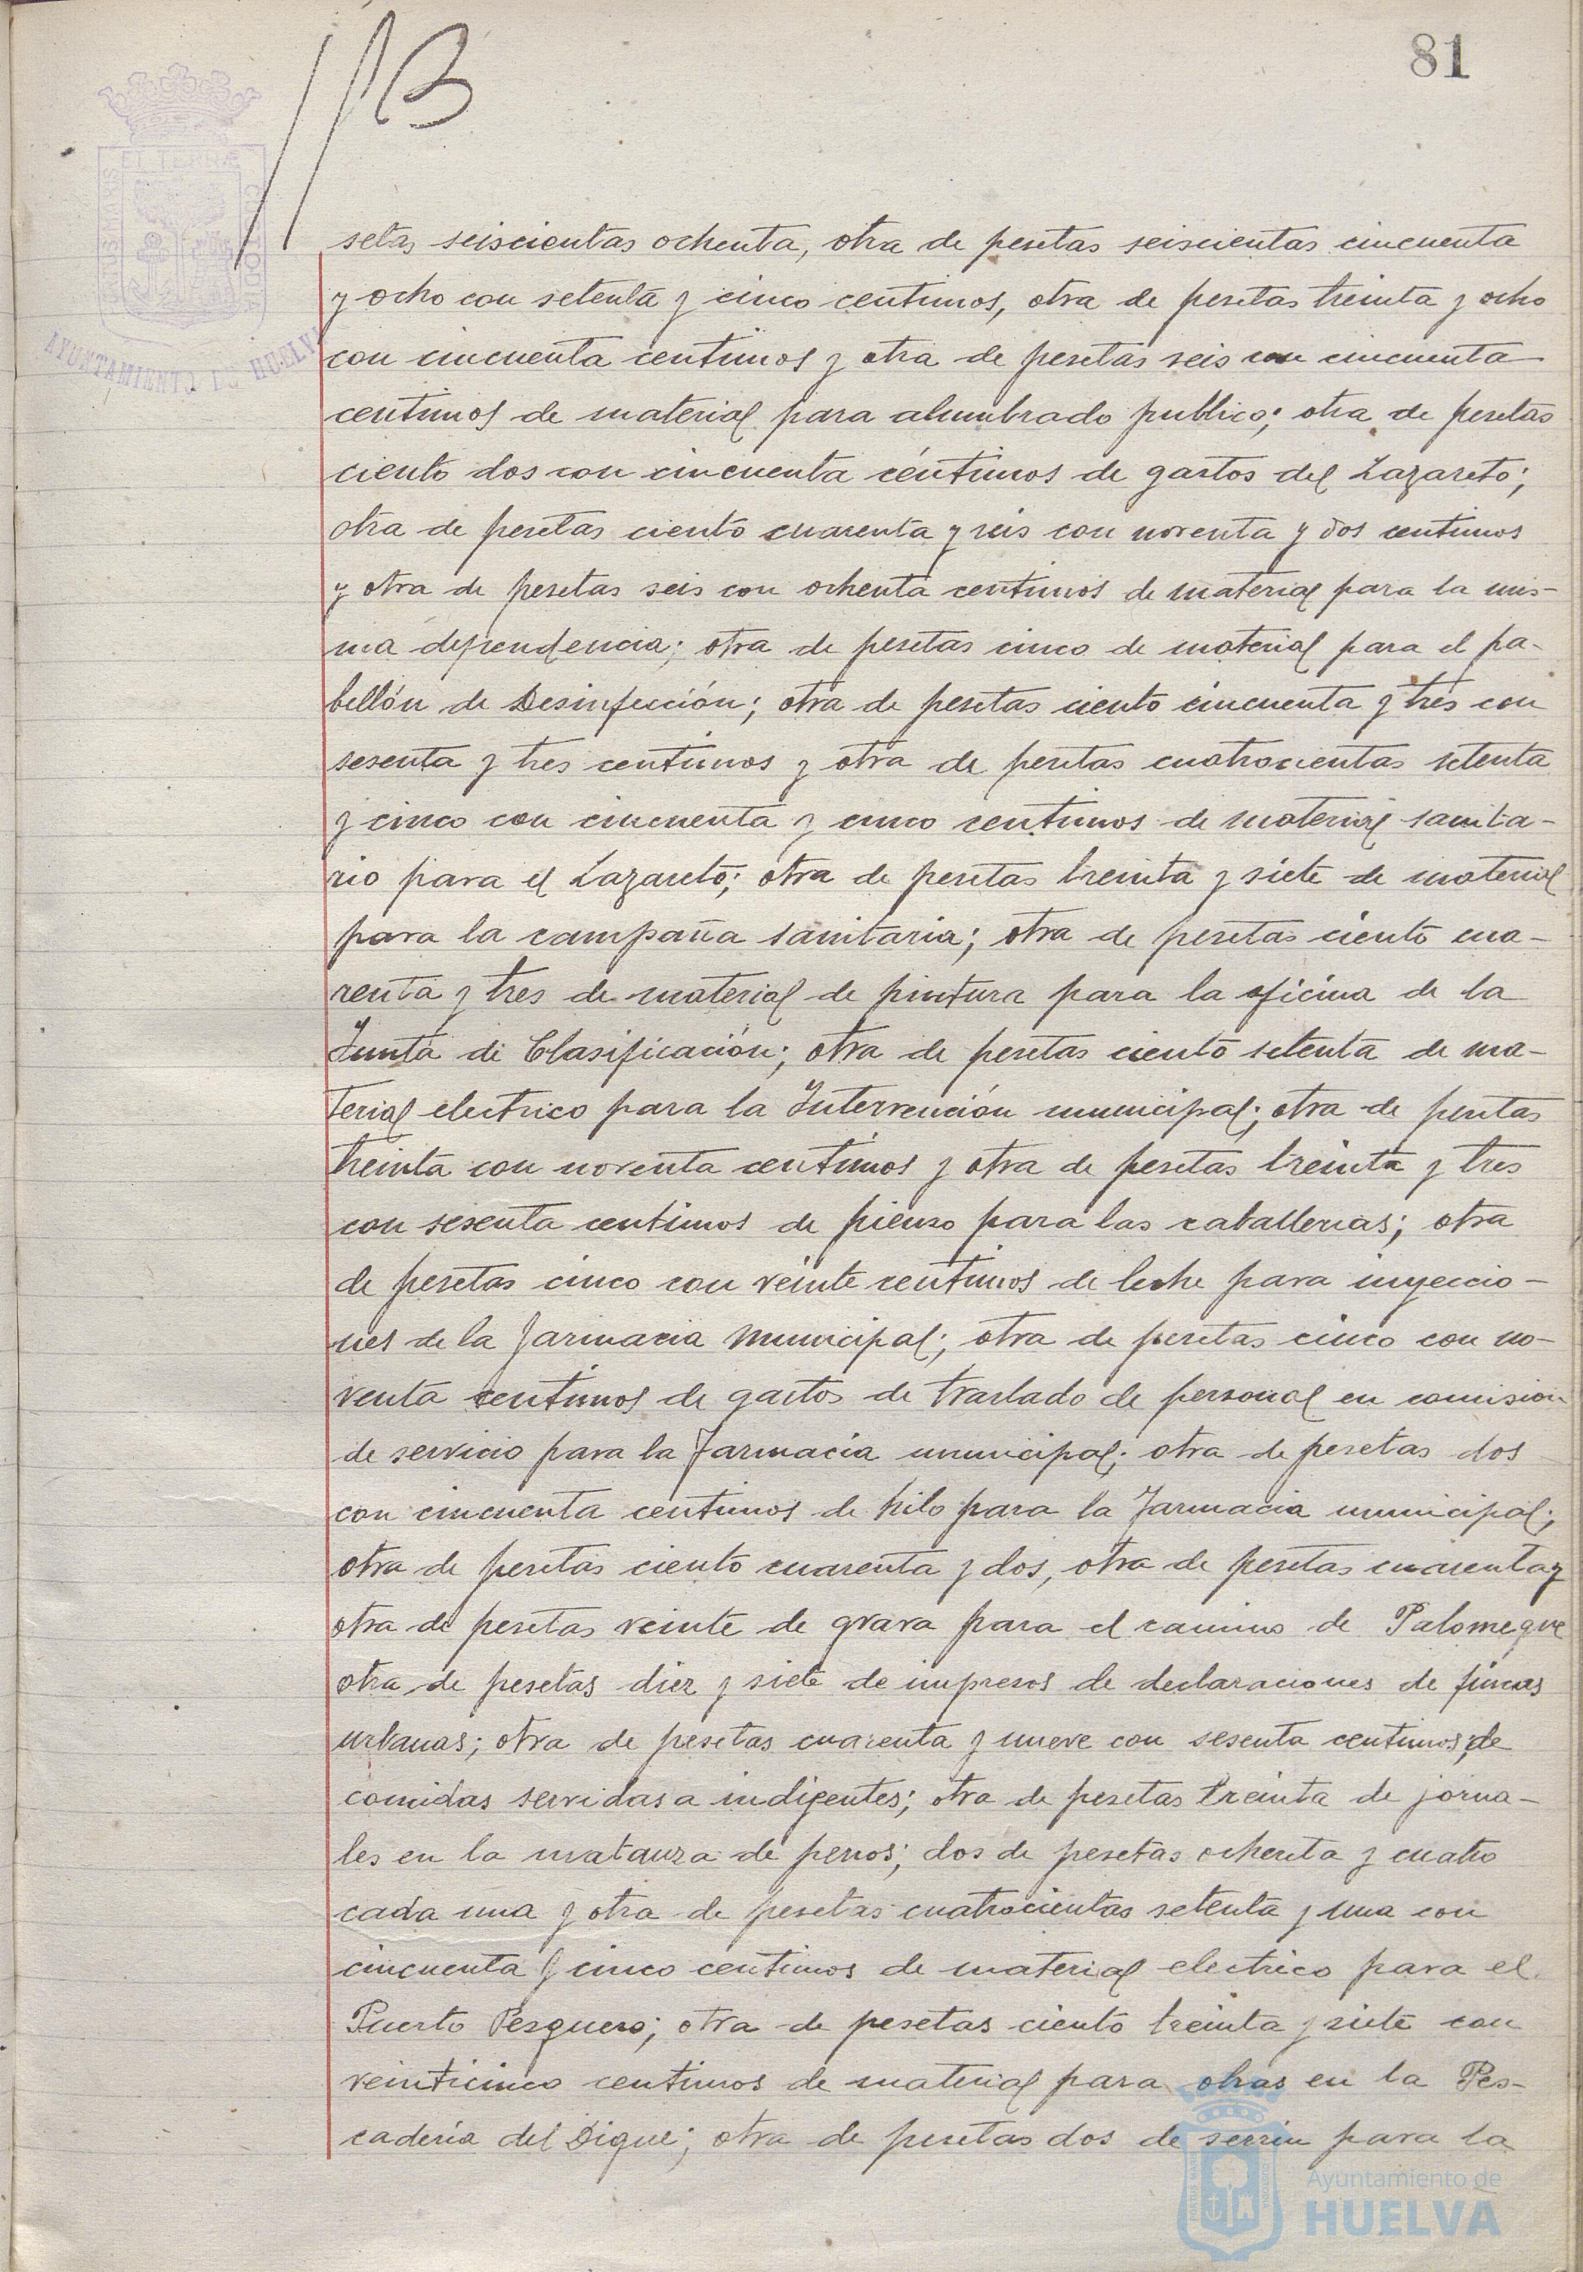 81
setas seiscientas ochenta, otra de pesetas seiscientas cincuenta
y ocho con setenta y cinco centimos, otra de pesetas treinta y ocho
con cincuenta centimos y otra de pesetas seis con cincuenta
centimos de material para alumbrado publico; otra de pesetas
ciento dos con cincuenta céntimos de gastos del Lazareto;
otra de pesetas ciento cuarenta y seis con noventa y dos centimos
y otra de pesetas seis con ochenta centimos de material para la mis-
ma dependencia; otra de pesetas cinco de material para el pa-
bellón de Desinfección; otra de pesetas ciento cincuenta y tres con
sesenta y tres centimos y otra de pesetas cuatrocientas setenta
y cinco con cincuenta y cinco centimos de material sanita-
rio para el Lazareto; otra de pesetas treinta y siete de material
para la campaña sanitaria; otra de pesetas ciento cua-
renta y tres de material de pintura para la oficina de la
Junta de Clasificación; otra de pesetas ciento setenta de ma-
terial electrico para la Intervención municipal; otra de pesetas
treinta con noventa centimos y otra de pesetas treinta y tres
con sesenta centimos de pienso para las caballerias; otra
de pesetas cinco con veinte centimos de leche para inyeccio-
nes de la farmacia Municipal; otra de pesetas cinco con no-
venta centimos de gastos de traslado de personal en comision
de servicio para la farmacia municipal; otra de pesetas dos
con cincuenta centimos de hilo para la farmacia municipal;
otra de pesetas ciento cuarenta y dos, otra de pesetas cuarenta y
otra de pesetas veinte de grava para el camino de Palomeque
otra de pesetas diez y siete de impresos de declaraciones de fincas
urbanas; otra de pesetas cuarenta y nueve con sesenta centimos, de
comidas servidas a indigentes; otra de pesetas treinta de jorna-
les en la matanza de perros; dos de pesetas ochenta y cuatro
cada una y otra de pesetas cuatrocientas setenta y una con
cincuenta y cinco centimos de material electrico para el
Puerto Pesquero; otra de pesetas ciento treinta y siete con
veinticinco centimos de material para obras en la Pes-
caderia del Dique; otra de pesetas dos de serrin para la
AYUNTAMIENTO DE HUELVA
Ayuntamiento de
HUELVA